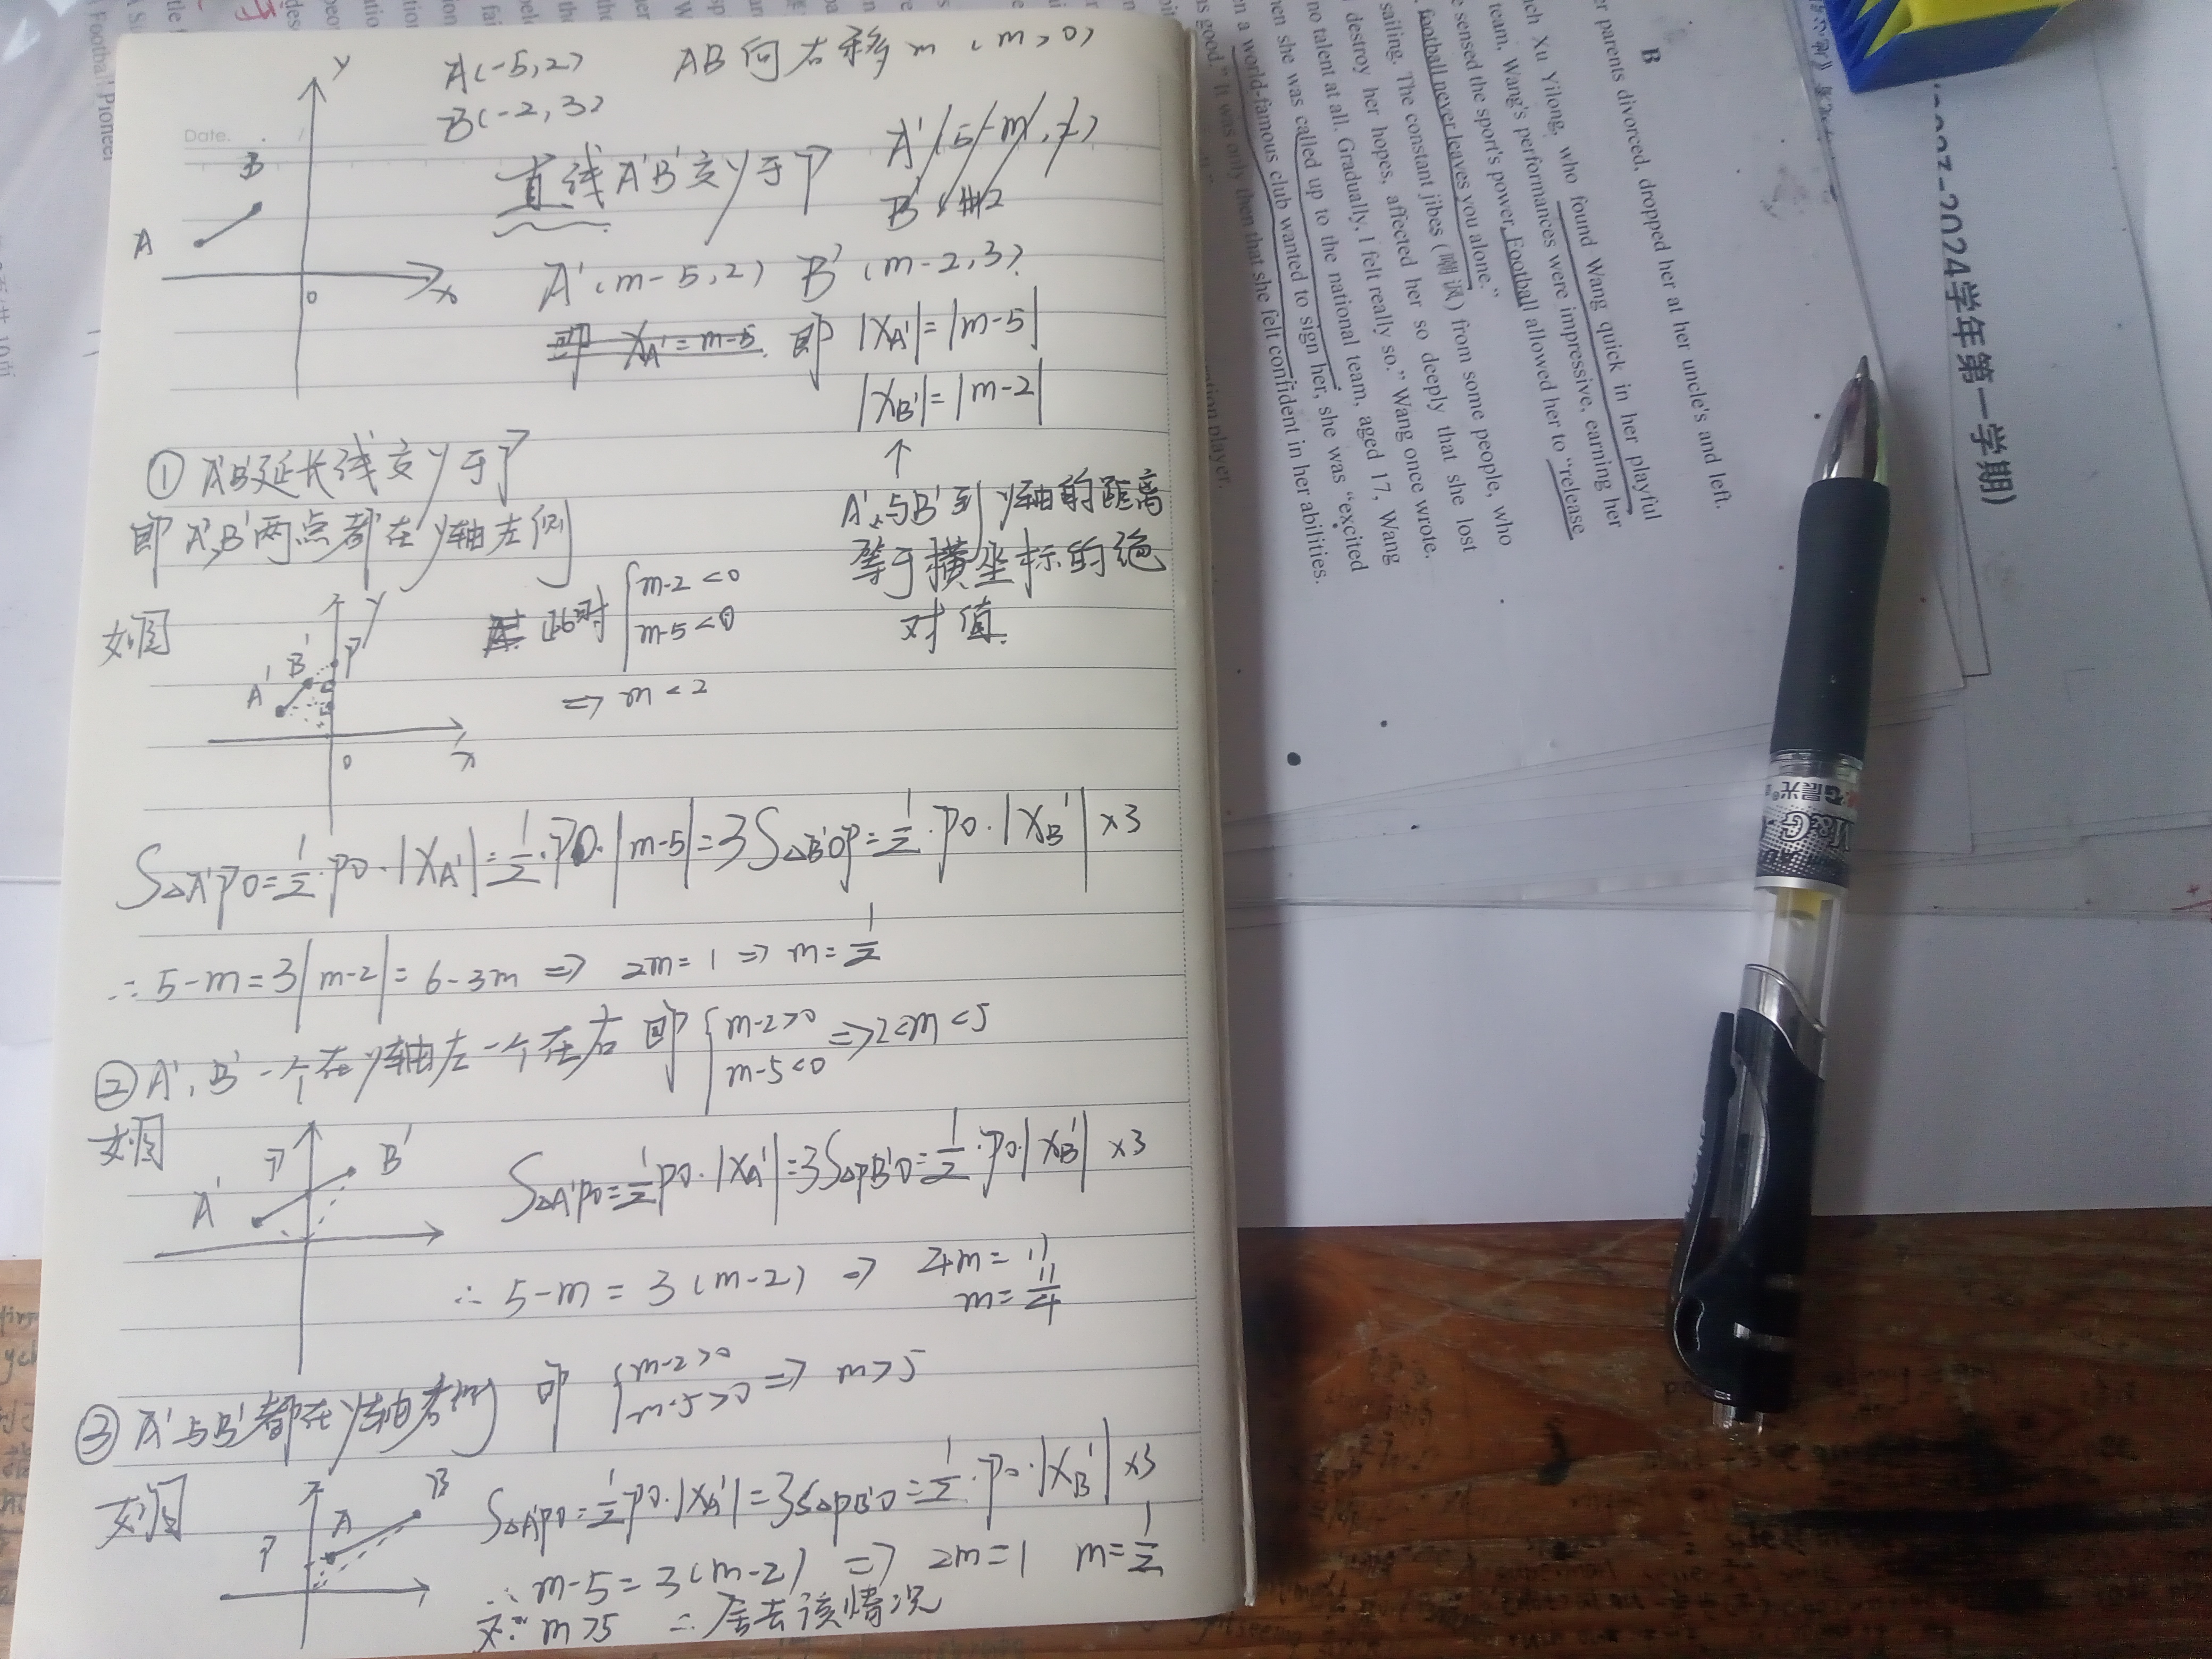 A(-5,2) AB向右移m (m>0)
B(-2,3)
Date.
直线A'B'交y于P
A'(m-5,2) B'(m-2,3)
即 |XA'|=|m-5|
|XB'|=|m-2|
↑
A'与B'到y轴的距离
等于横坐标的绝
对值.
y
B
A
0
x
① A'B'延长线交y于P
即A',B'两点都在y轴左侧
如图
此时 { m-2<0
m-5<0
⇒ m<2
y
P
B'
A'
0
x
S△A'PO=1/2·PO·|XA'|=1/2·PO·|m-5|=3S△B'OP=1/2·PO·|XB'|×3
∴5-m=3|m-2|=6-3m ⇒ 2m=1 ⇒ m=1/2
② A',B'一个在y轴左一个在右 即 { m-2>0
m-5<0 ⇒2<m<5
如图
P B'
A'
S△A'PO=1/2PO·|XA'|=3S△PB'O=1/2·PO·|XB'|×3
∴ 5-m=3(m-2) ⇒ 4m=11
m=11/4
③ A'与B'都在y轴右侧 即 { m-2>0
m-5>0 ⇒ m>5
如图
B
A
P
S△A'PO=1/2PO·|XA'|=3S△PB'O=1/2·PO·|XB'|×3
∴m-5=3(m-2) ⇒ 2m=1 m=1/2
又∵m>5 ∴舍去该情况
B
er parents divorced, dropped her at her uncle's and left.
ch Xu Yilong, who found Wang quick in her playful
team, Wang's performances were impressive, earning her
e sensed the sport's power. Football allowed her to “release
football never leaves you alone.”
sailing. The constant jibes (嘲讽) from some people, who
destroy her hopes, affected her so deeply that she lost
no talent at all. Gradually, I felt really so.” Wang once wrote.
hen she was called up to the national team, aged 17, Wang
n a world-famous club wanted to sign her, she was “excited
is good.” It was only then that she felt confident in her abilities.
2024学年第一学期)
M&G晨光